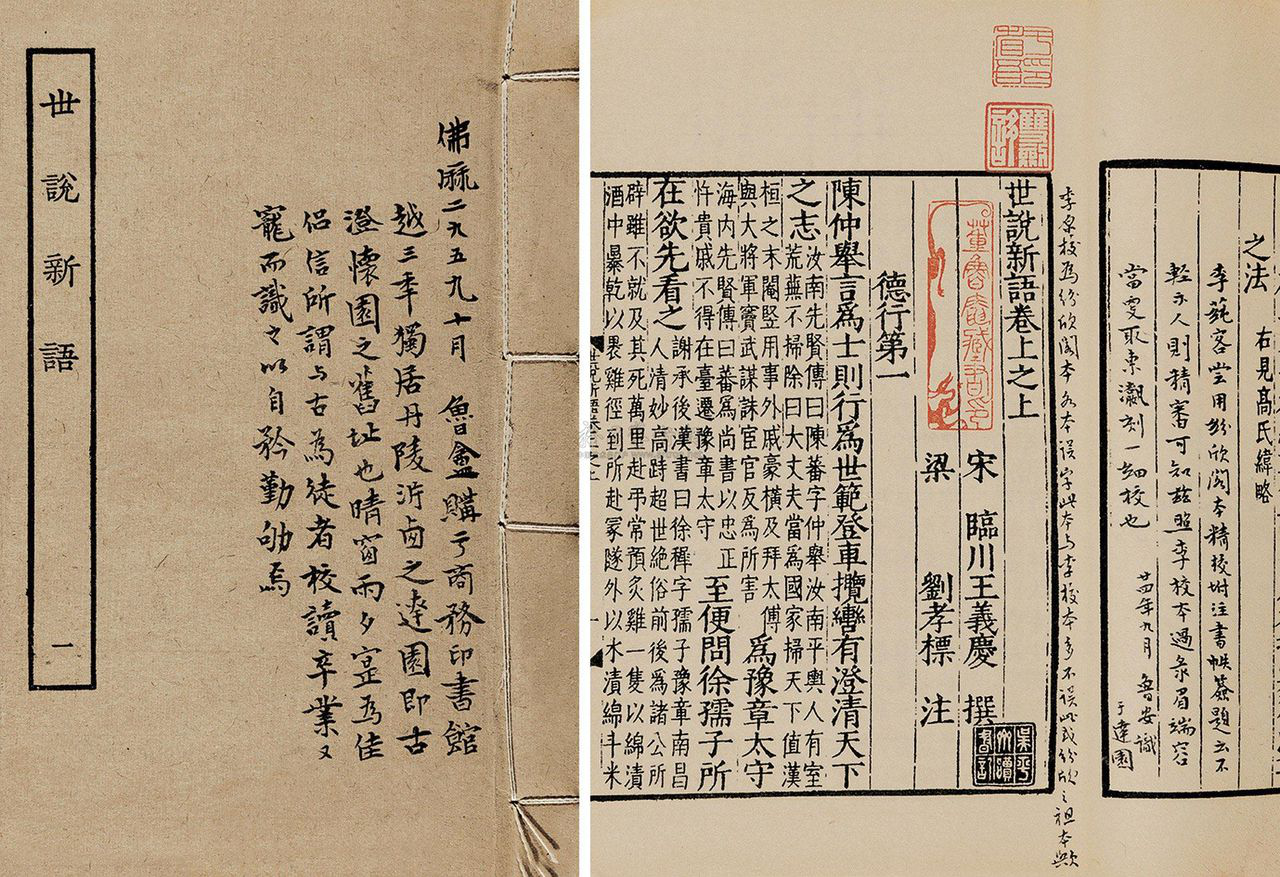 世說新語 一
佛厤二九五九十月 魯盦購亏商務印書館
越三年獨居丹陵沜卣之達園即古
澄懷園之舊址也晴窗雨夕寔為佳
侶信所謂与古為徒者校讀卒業又
寵而識之以自矜勤劬焉
之法 右見高氏緯略
李蒓客嘗用紛欣閣本精校坿注書帙簽題云不
輕示人則精審可知茲照李校本過彔眉端容
當更取袁刻一細校也
廿四年九月 魯安識
于達園
李原校為紛欣閣本本誤字此本与李校本多不誤此或紛欣之祖本歟
世說新語卷上之上
宋 臨川王義慶 撰
梁 劉孝標 注
德行第一
陳仲舉言爲士則行爲世範登車攬轡有澄清天下
之志
汝南先賢傳曰陳蕃字仲舉汝南平輿人有室
荒蕪不掃除曰大丈夫當爲國家掃天下值漢
桓之末閹豎用事外戚豪橫及拜太傅
與大將軍竇武謀誅宦官反爲所害
爲豫章太守
海内先賢傳曰蕃爲尚書以忠正
忤貴戚不得在臺遷豫章太守
至便問徐孺子所
在欲先看之
謝承後漢書曰徐穉字孺子豫章南昌
人清妙高跱超世絶俗前後爲諸公所
辟雖不就及其死萬里赴弔常預炙雞一隻以綿漬
酒中暴乾以裹雞徑到所赴冢隧外以水漬綿斗米